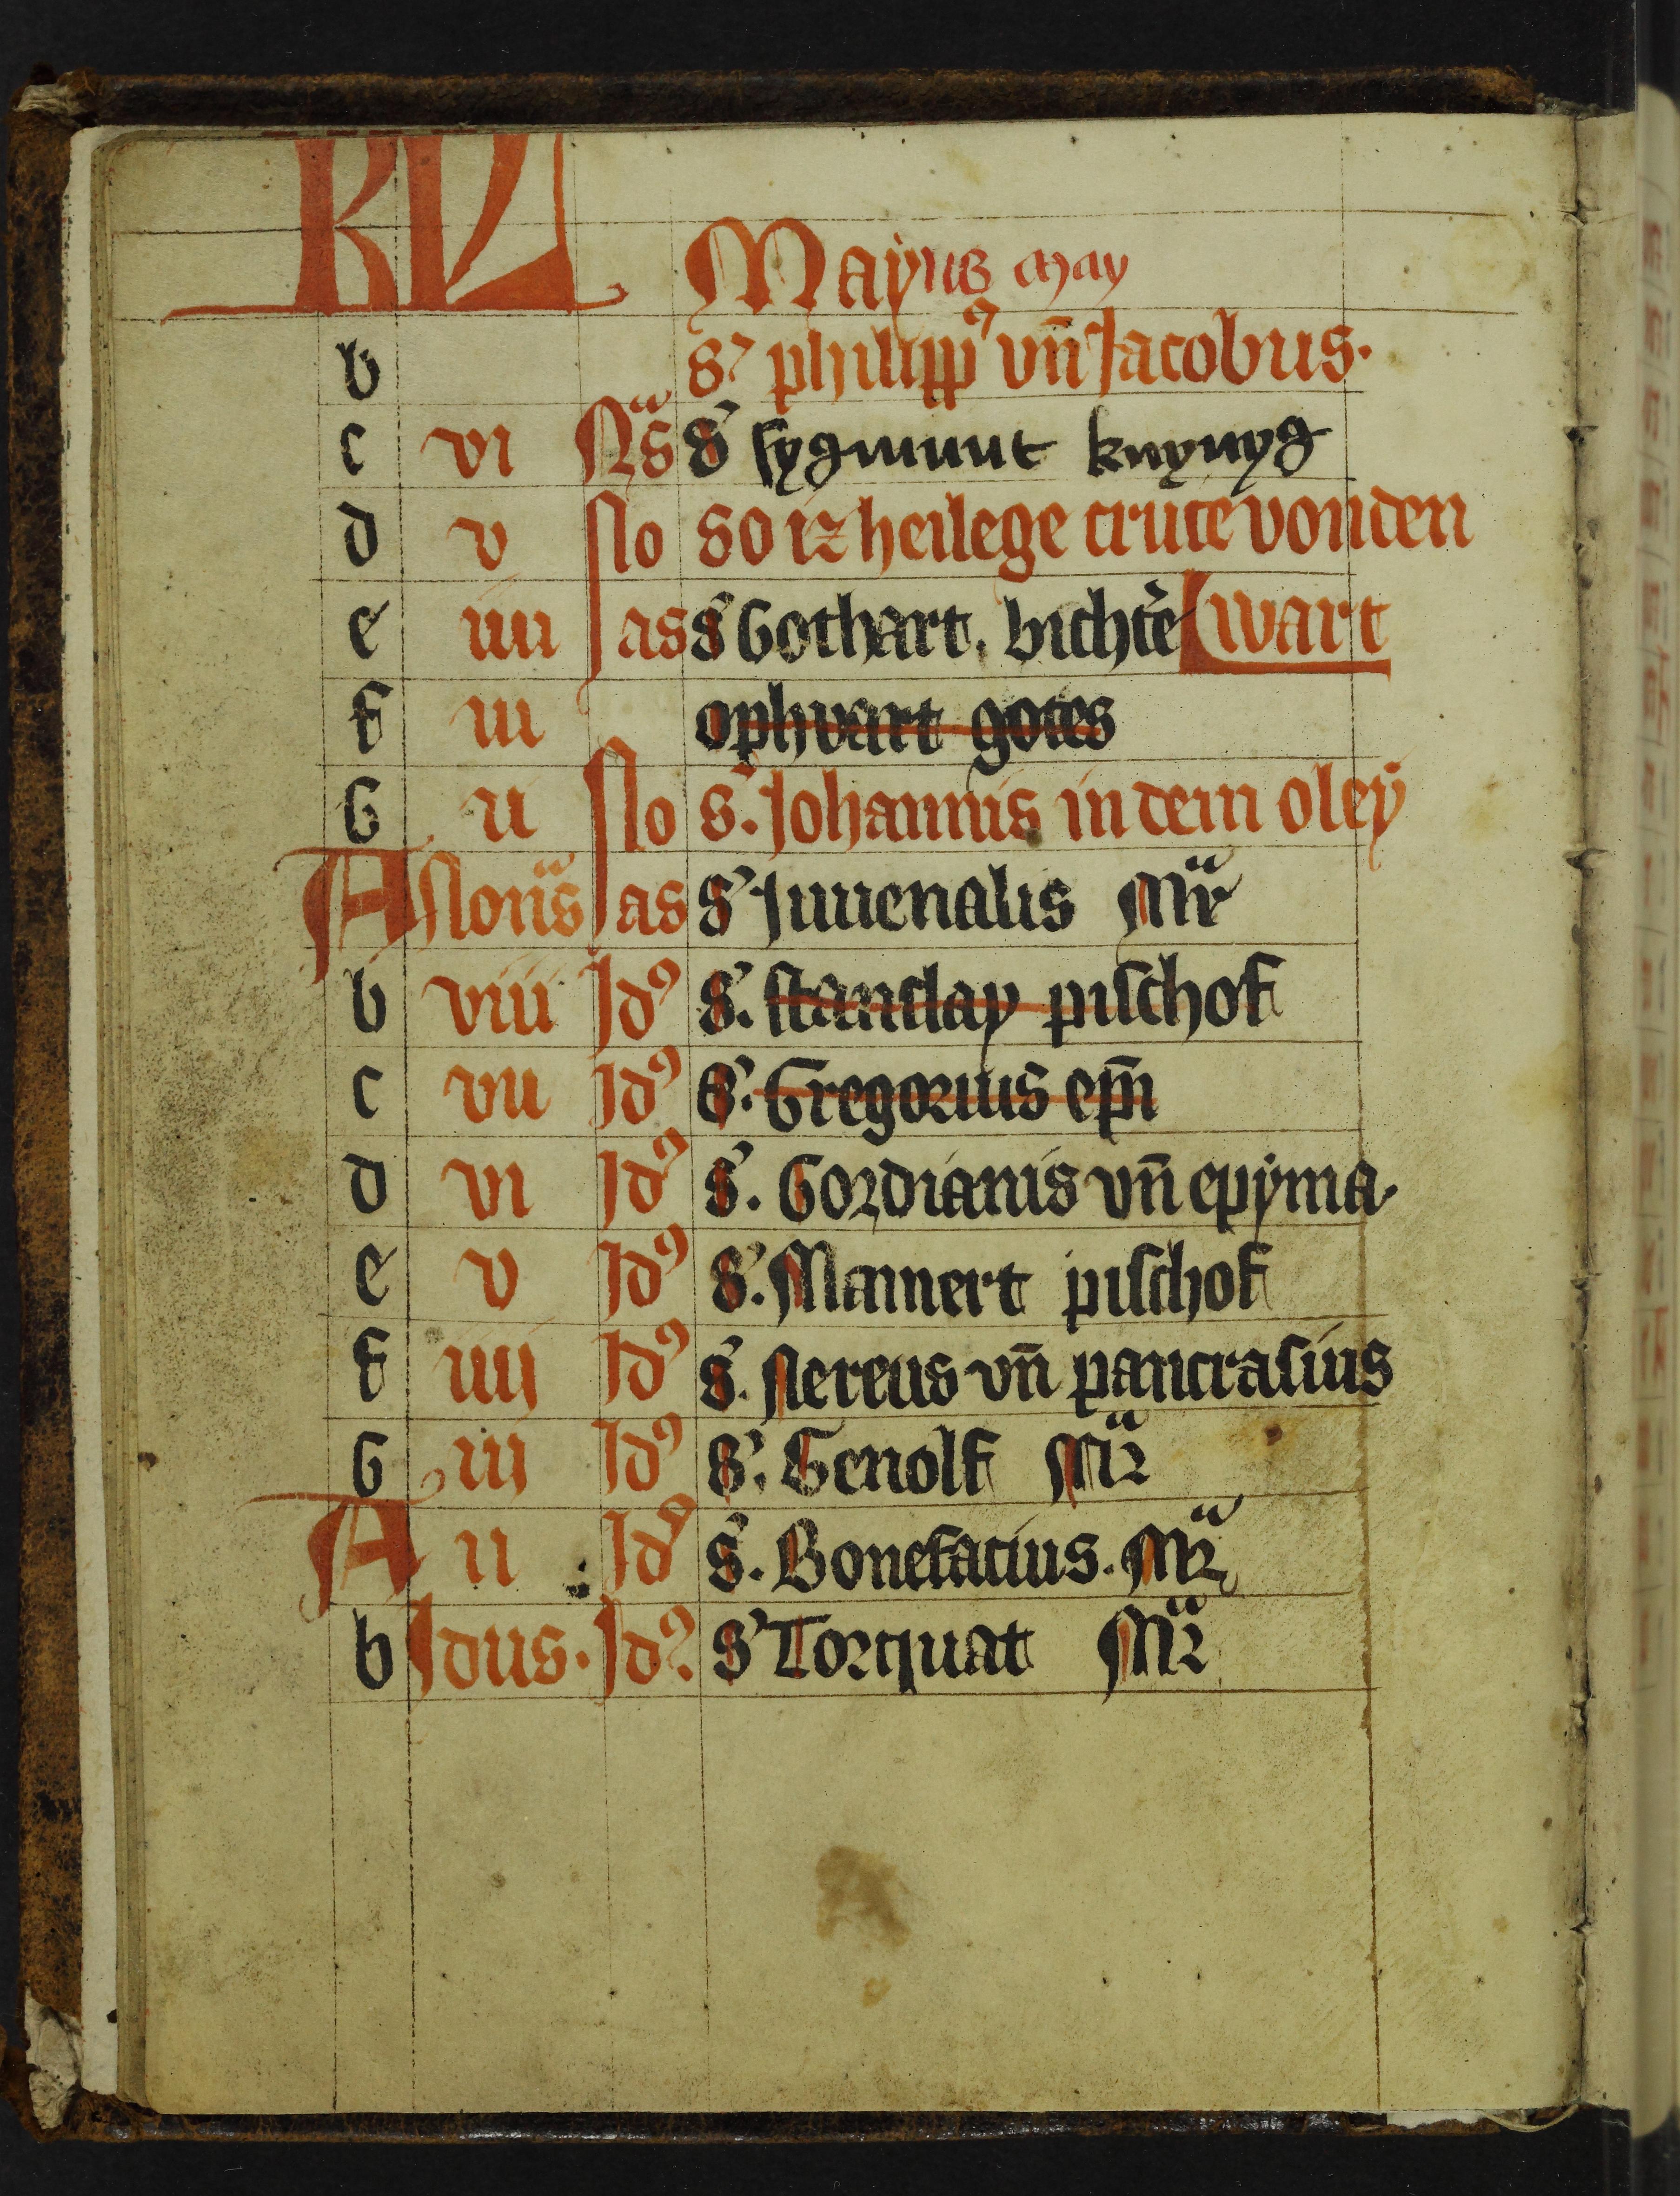 KL Mayus may
b S? philipp⁹ vn̄ Jacobus.
c vi Ns̄ S' sygmunt knynyg
d v No So iz heilege cruce vonden
e iiii nas S' Gothart. bichte' wart
f iii ophvart gotes
G ii No S. Johannis in dem oley
A Nonis nas S' Juuenalis Mr
b viii Id⁹ S. stanslay pischof
c vii Id⁹ S. Gregorius epī
d vi Id⁹ S. Gordianis vn̄ epyma
e v Id⁹ S. Mamert pischof
f iiii Id⁹ S. Nereus vn̄ pancrasius
G iii Id⁹ S. Genolf Mr
A ii Id⁹ S. Bonefacius. Mr
b Idus. Id⁹ S' Torquat Mr